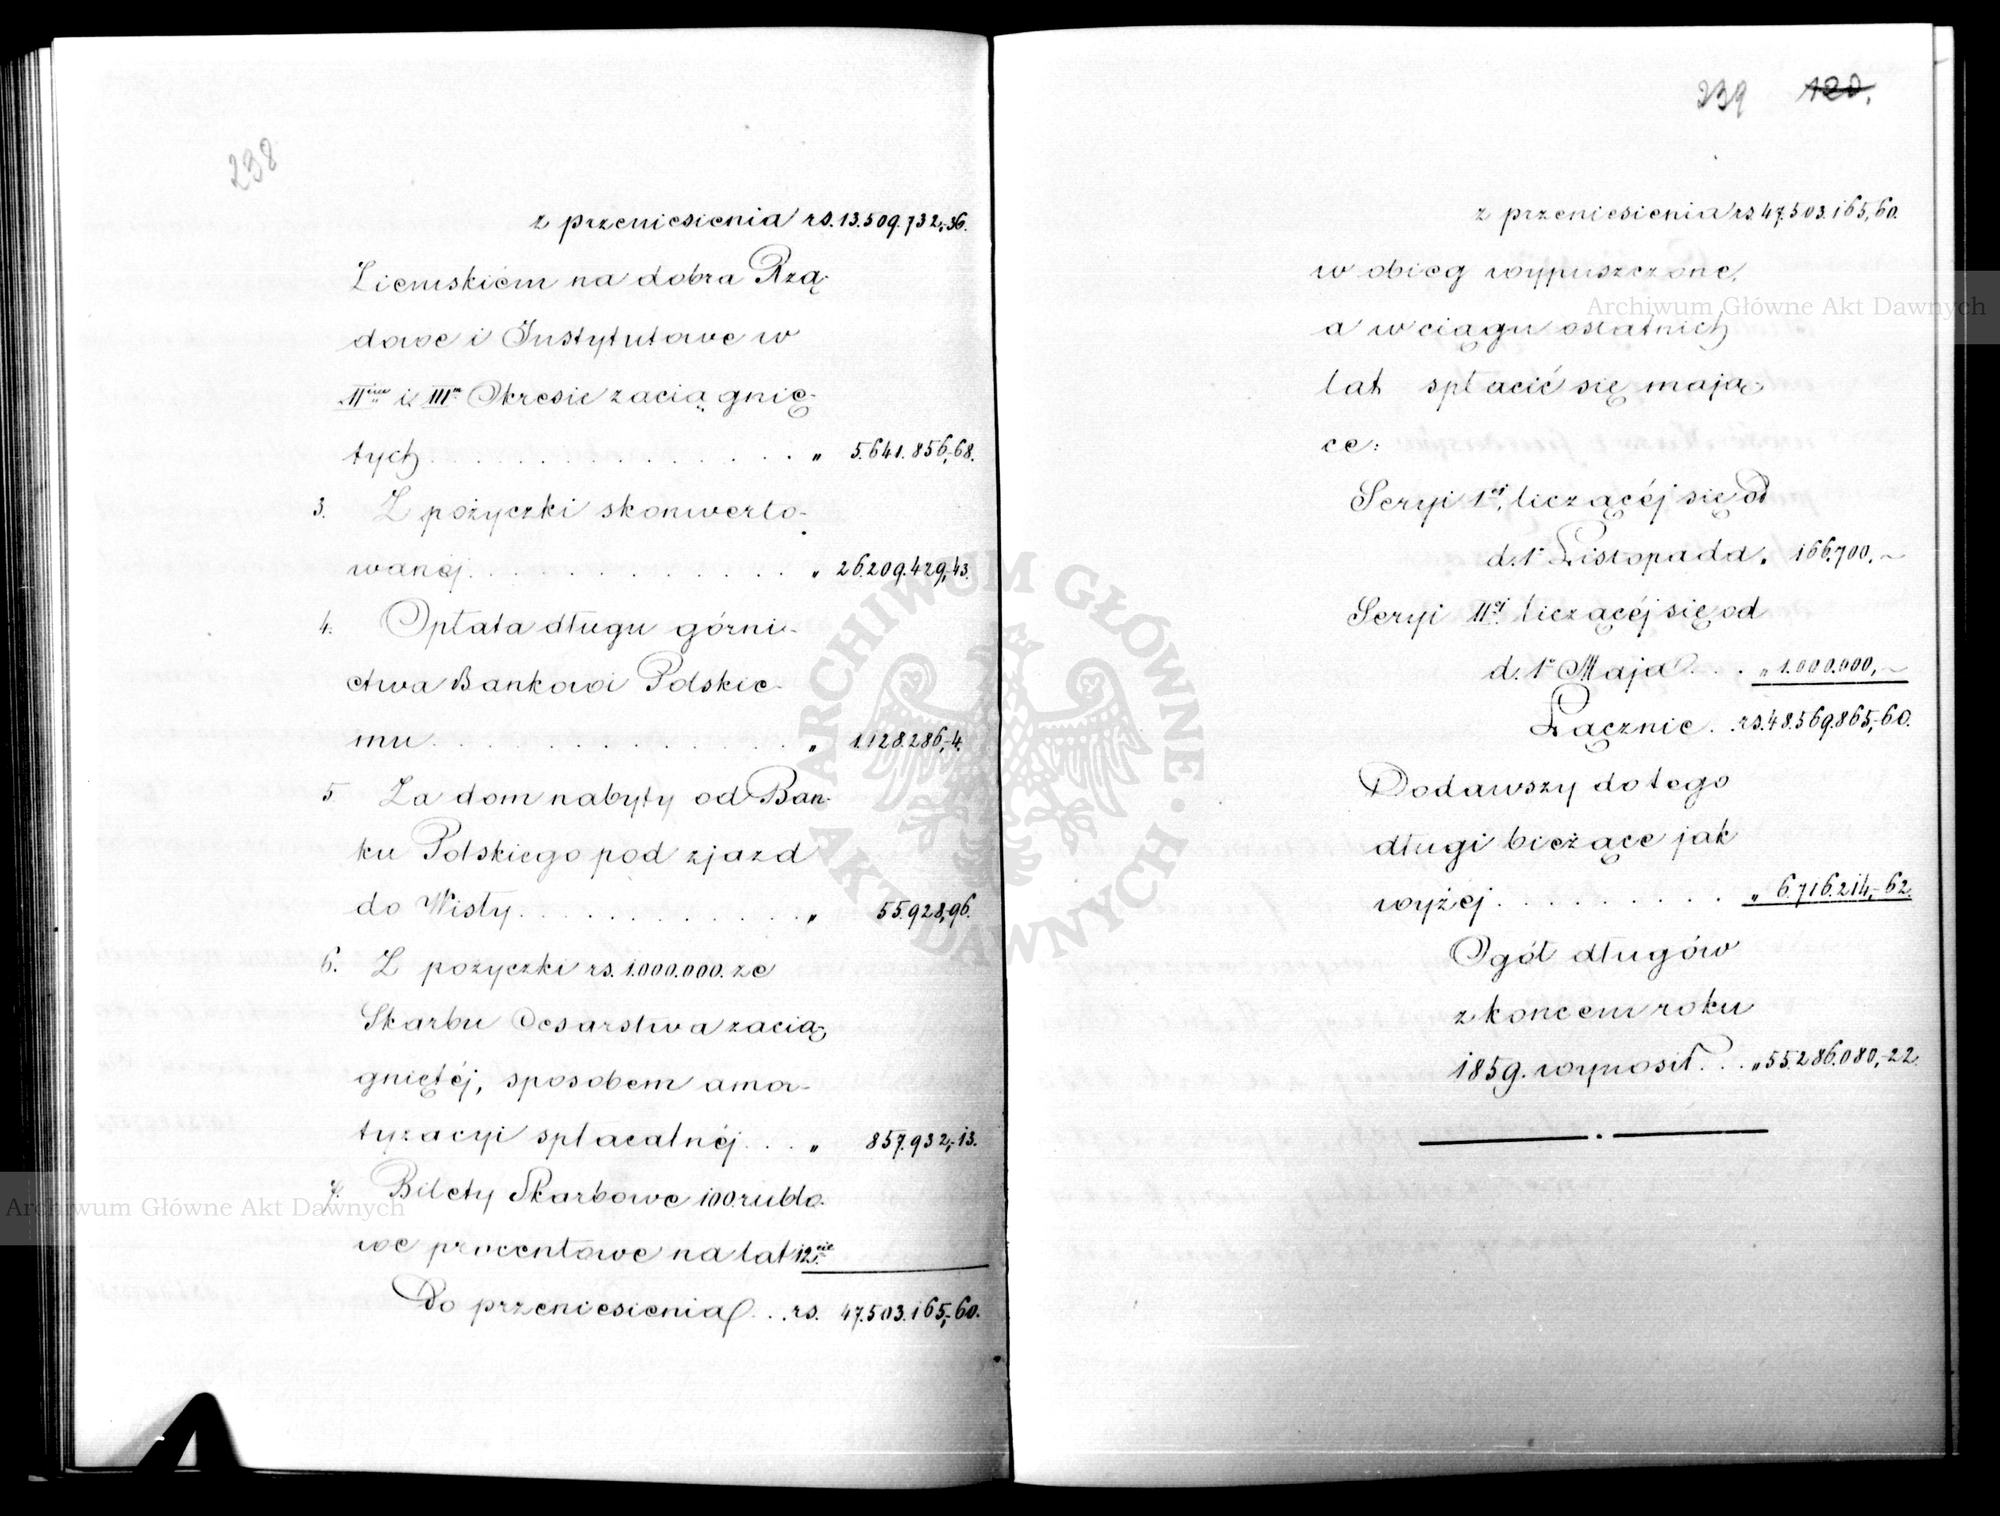 238
z przeniesienia rs. 13.509.732,-36.
Ziemskiém na dobra Rzą-
dowe i Instytutowe w
IIim i IIIm Okresie zaciągnię-
tych . . . . . . . . . . . . . . „ 5.641.856,-68.
3. Z pożyczki skonwerto-
wanéj . . . . . . . . . . . . . „ 26.209.429,-43.
4. Opłata długu górni-
ctwa Bankowi Polskie-
mu . . . . . . . . . . . . . . „ 1.128.286,-4.
5 Za dom nabyty od Ban-
ku Polskiego pod zjazd
do Wisły . . . . . . . . . . . „ 55.928,96.
6. Z pożyczki rs. 1.000.000. ze
Skarbu Cesarstwa zacią-
gniętéj, sposobem amor-
tyzacyi spłacalnéj . . . „ 857.932,-13.
7. Bilety Skarbowe 100. rublo-
we procentowe na lat 12cie
Do przeniesienia . . . rs. 47.503.165,-60.
239 120.
z przeniesienia rs. 47.503.165,60.
w obieg wypuszczone,
a w ciągu ostatnich
lat spłacić się mają-
ce:
Seryi 1ej liczącéj się od
d. 1o Listopada „ 166.700,~
Seryi IIej liczącéj się od
d. 1o Maja . . . „ 1.000.000,~
Łącznie . . rs. 48.569.865,-60.
Dodawszy do tego
długi bieżące jak
wyżéj . . . . . . . . . . „ 6.716.214,-62.
Ogół długów
z końcem roku
1859. wynosił . . . „ 55.286.080,-22.
Archiwum Główne Akt Dawnych
Archiwum Główne Akt Dawnych
ARCHIWUM GŁÓWNE AKT DAWNYCH